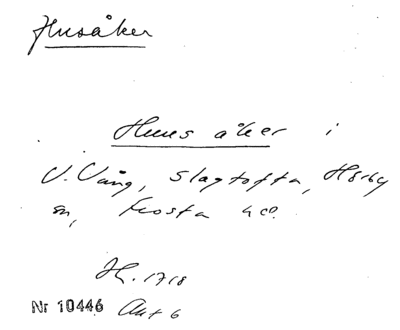 Husåker
Hus åker i
V. Vång, Slagtofta, Hörby
sn, Frosta hd.
H. 1718
Nr 10446 Akt 6